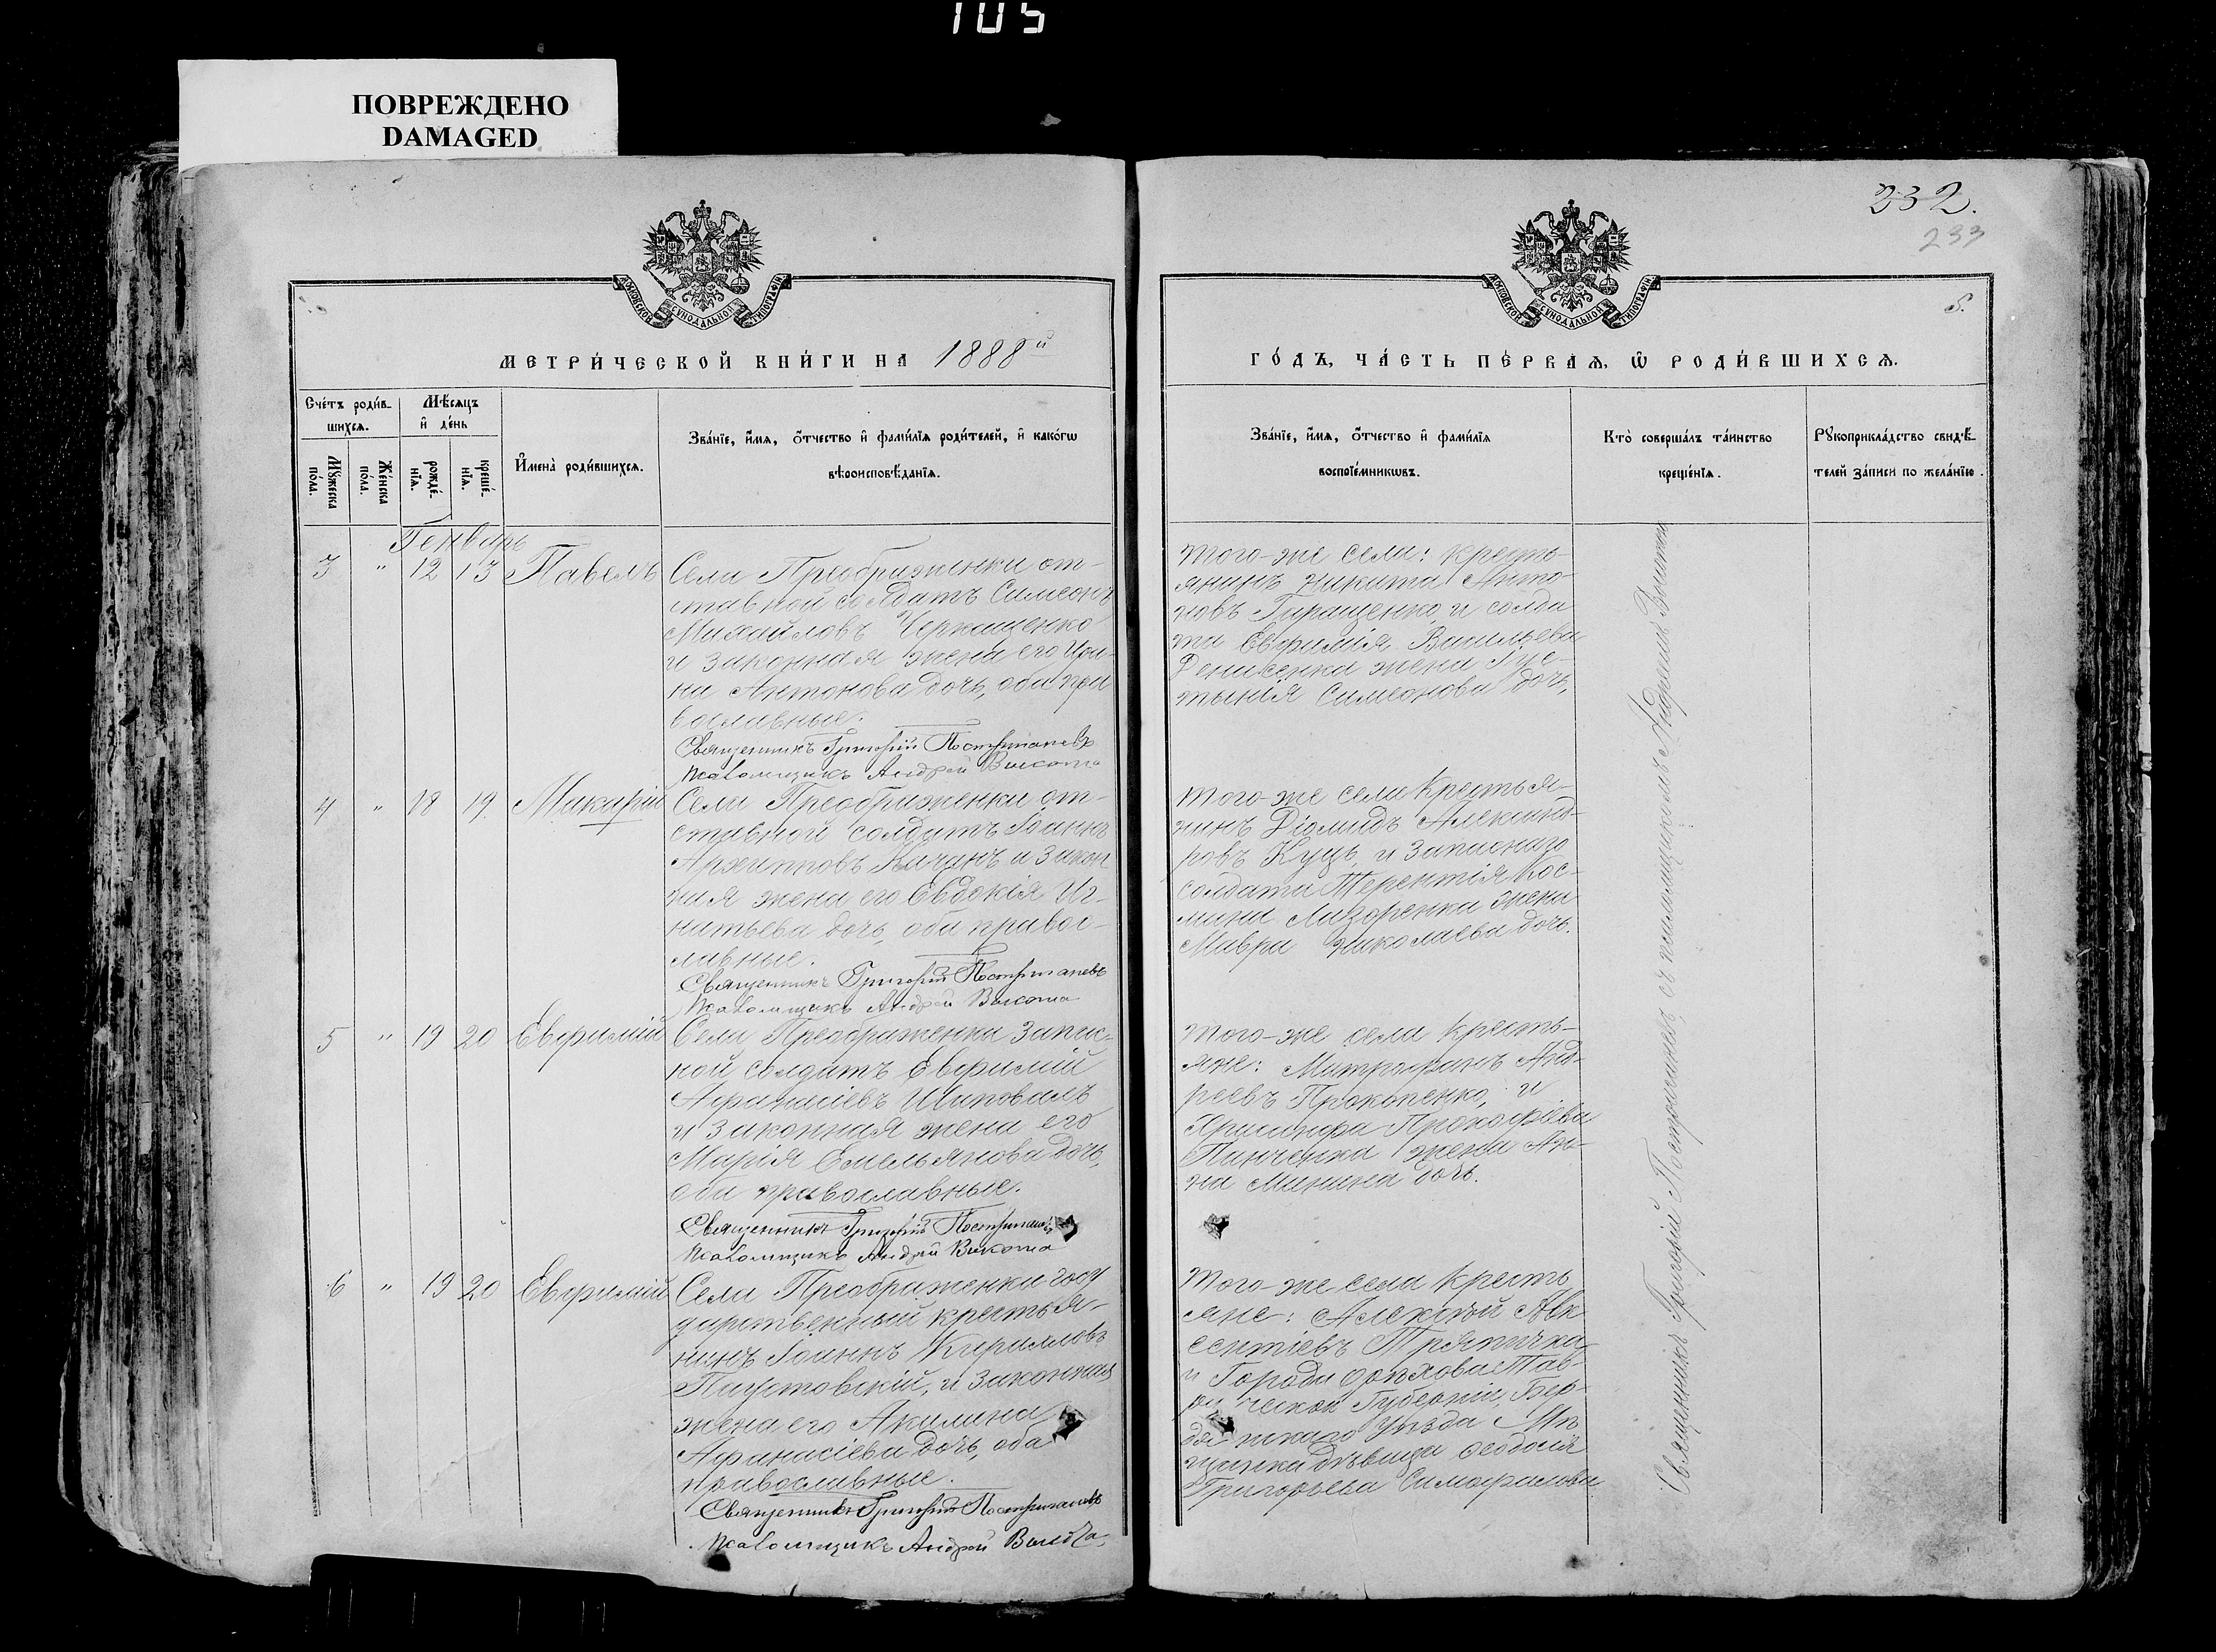 105
ПОВРЕЖДЕНО
DAMAGED
232.
233
МОСКОВСКОЙ СѴНОДАЛЬНОЙ ТИПОГРАФІИ
МОСКОВСКОЙ СѴНОДАЛЬНОЙ ТИПОГРАФІИ
5.
МЕТРИ́ЧЕСКОЙ КНИ́ГИ НА 1888й
ГО́ДЪ, ЧА́СТЬ ПЕ́РВАѦ, Ѡ҆ РОДИ́ВШИХСѦ.
Сче́тъ роди́в-
шихсѧ.
Мѣ́сѧцъ
и҆ де́нь
Мꙋ́жеска
по́ла.
Же́нска
по́ла.
рожде́-
нїѧ.
креще́-
нїѧ.
И҆мена̀ роди́вшихсѧ.
Зва́нїе, и҆́мѧ, ѻ҆́тчество и҆ фамѝлїѧ роди́телей, и҆ како́гѡ
вѣроисповѣ́данїѧ.
Зва́нїе, и҆́мѧ, ѻ҆́тчество и҆ фамѝлїѧ
воспрїе́мникѡвъ.
Кто̀ соверша́лъ та́инство
креще́нїѧ.
Рꙋкоприкла́дство свидѣ́-
телей за́писи по жела́нїю.
Генварь
3 " 12 13 Павелъ
Села Преображенки от-
ставной солдатъ Симеонъ
Михайловъ Черкащенко
и законная жена его Ири-
на Антонова дочь, оба пра
вославные.
Священникъ Григорій Постриганевъ
Псаломщикъ Андрей Высота
того-же села: кресть-
янинъ Никита Анто-
новъ Геращенко, и солда
та Евфимія Васильева
Денисенка жена
Симеонова дочь,
4 " 18 19. Макарій
Села Преображенки от-
ставной солдатъ Іоаннъ
Архипповъ Качанъ и закон
ная жена его Евдокія Иг-
натьева дочь, оба правос-
лавные.
Священникъ Григорій Постриганевъ
Псаломщикъ Андрей Высота
того-же села Крестья-
нинъ Діомидъ Александ-
ровъ Куцъ, и запаснаго
солдата Терентія Кос-
мина Лазоренка жена
Мавра Николаева дочь.
5 " 19 20 Евфимій
Села Преображенка запас-
ной солдатъ Евфимій
Афанасіевъ Шаповалъ
и законная жена его
Марія Емельянова дочь,
оба православные.
Священникъ Григорій
Псаломщикъ Андрей Высота
того-же села кресть-
яне: Митрофанъ Анд-
реевъ Прокопенко, и
Прокофіева
Панченка жена Ан-
на Минина дочь.
6 " 19 20 Евфимій
Села Преображенки госу
дарственный крестья-
нинъ Іоаннъ Кирилловъ
Паустовскій, и законная
жена его Акилина
Афанасіева дочь, оба
православные.
Священникъ Григорій Постриганевъ
Псаломщикъ Андрей Высота
того-же села кресть
яне: Алексѣй Авк
сентіевъ Тряпичка,
и Города Орѣхова Тав-
ри ческой Губерніи, Бер-
дя нскаго Уѣзда Мѣ
щанка дѣвица Ѳеодосія
Григорьева
Священникъ Григорій Постриганевъ, съ псаломщикомъ Андреемъ Высотою